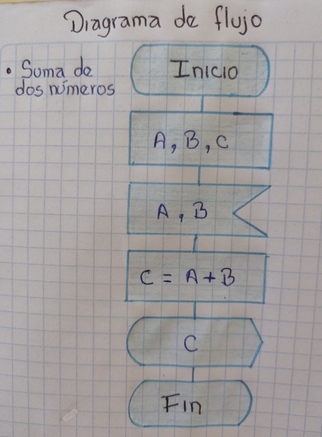 Diagrama de flujo
• Suma de
dos números
Inicio
A, B, C
A, B
C = A + B
C
Fin